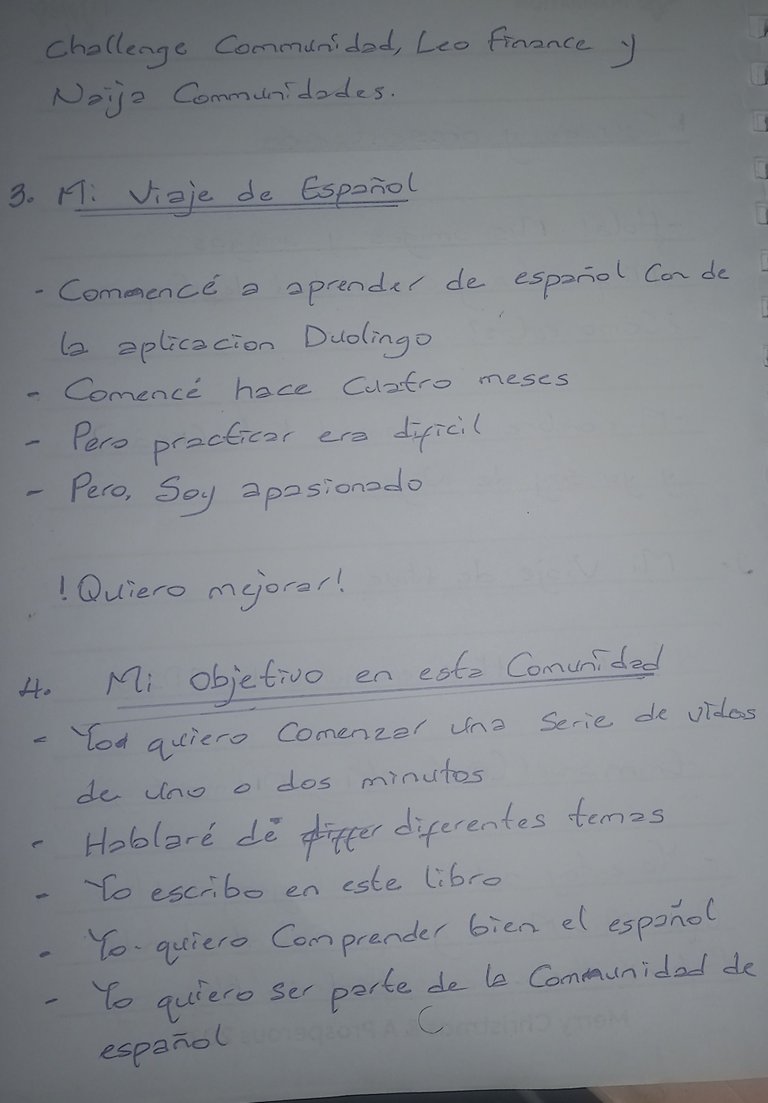 Challenge Communidad, Leo finance y
Naija Communidades.
3. Mi Viaje de Español
- Commencé a aprender de español con de
la aplicacion Duolingo
- Comencé hace cuatro meses
- Pero practicar era dificil
- Pero, Soy apasionado
! Quiero mejorar!
4. Mi objetivo en esta Comunidad
- Yo quiero comenzar una serie de videos
de uno o dos minutos
- Hablaré de differ diferentes temas
- Yo escribo en este libro
- Yo quiero Comprender bien el español
- Yo quiero ser parte de la Communidad de
español